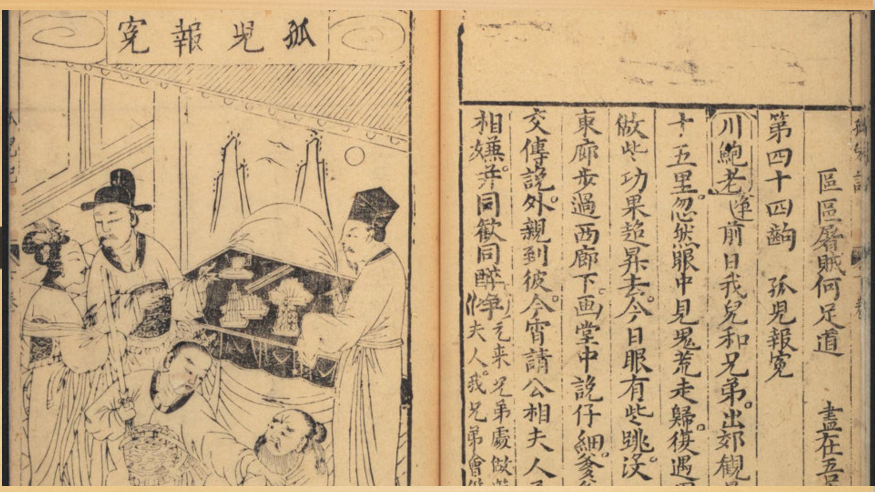 孤兒報寃
區區屠賊何足道 盡在吾
第四十四齣 孤兒報寃
川鮑老 前日我兒和兄弟出郊觀
十五里忽然眼中見鬼荒走歸復遇
做些功果超昇去今日眼有些跳沒
東廊步過西廊下画堂中說仔細爹爹
交傳說外親到彼今宵請公相夫人
相嫌弃同歡同醉 夫人我兄弟會
乞来兄弟處做